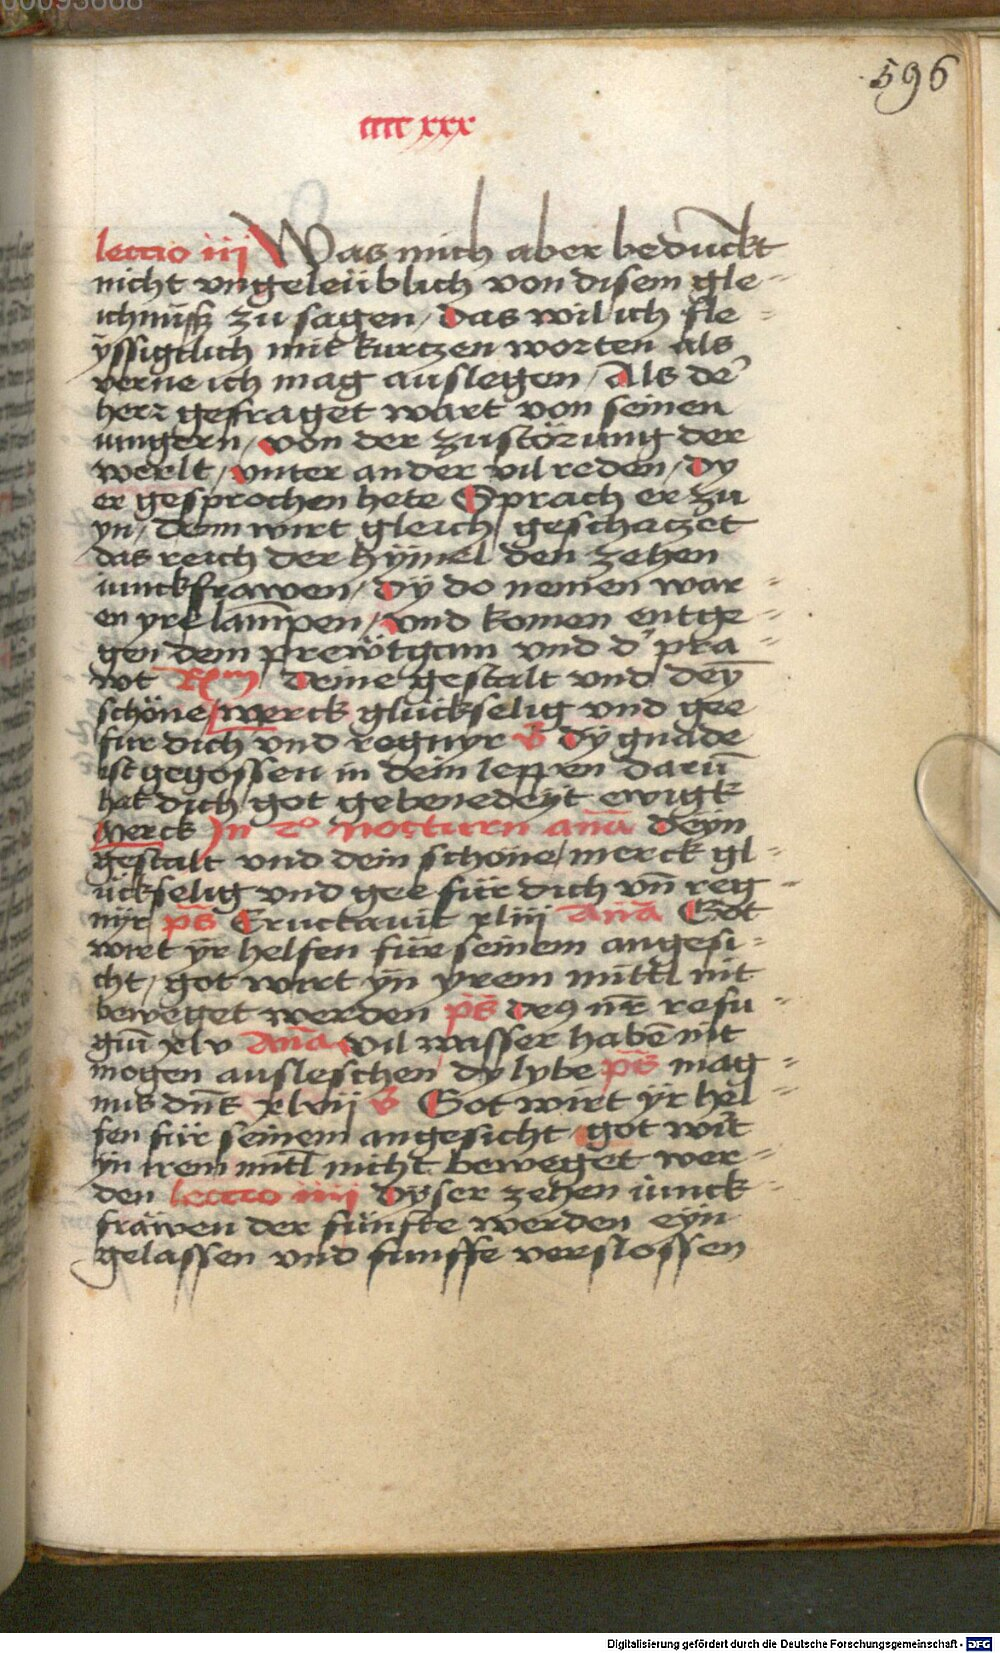 00093668
596
cccc xxx
lectio iij Was mich aber bedunckt
nicht vngeleüblich von disem gle-
ichnüsß zu sagen / das wil ich fle-
yssigtlich mit kurtzen worten als
verne ich mag auslegen / Als de᷒
herr gefraget wart von seinen
iungern / von der zustörung der
werlt / vnter ander vil reden / dy
er gesprochen hete Sprach er zu
yn / denn wirt gleich geschatzet
das reich der hÿmel den zehen
iunckfrawen / dÿ do nemen war-
en yre lampen / vnd komen entge-
gen dem prewtgam vnd d᷒ pra-
wt Rm̄ deine gestalt vnd deȳ
schöne / werck glückselig vnd gee
fur dich vnd regnyr V dÿ gnade
ist gegossen in dein leppen darū
hat dich got gebenedeÿt ewigk
Merck In 2o nocturn an̄a deyn
gestalt vnd dein schöne / merck gl-
ückselig vnd gee für dich vn̄ reg-
nÿr ps̄ Eructauit xliiij An̄a Got
wirt ÿr helfen für seinem angesi-
cht / got wirt yn yrem mittl nit
beweget werden ps̄ deꝯ nr̄ refu-
giū xlv An̄a vil wasser habē nit
mogen ausleschen dy lybe ps̄ mag-
nus dn̄s xlvij V Got wirt ÿr hel-
fen für seinem angesicht got wirt
ÿn irem mitl nicht beweget wer-
den lectio iiij Dÿser zehen iunck-
frawen der fünfte werden eyn
gelassen vnd funffe verslossen
Digitalisierung gefördert durch die Deutsche Forschungsgemeinschaft - DFG